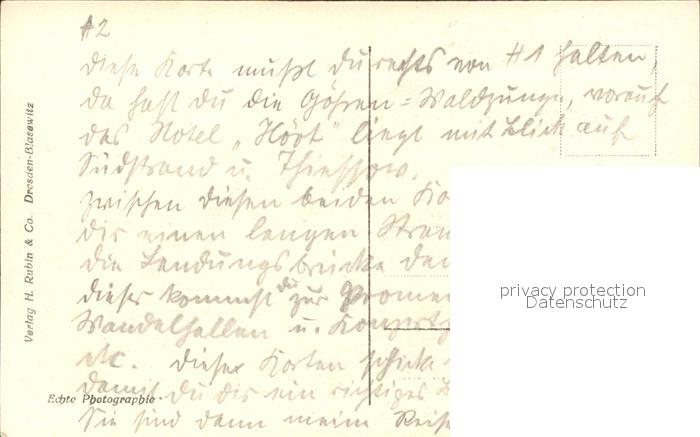 #2
diese Karte mußt du rechts von #1 halten,
da hast du die Göhren=Waldzunge, worauf
das Hotel „Hövt" liegt mit Blick auf
Südstrand u. Thiessow.
Zwischen diesen beiden Ka
dir einen langen Stran
die Landungsbrücke den
dieser kommst du zur Promen
Wandelhallen u. Konzertp
etc. Diese Karten schicke
damit du dir ein richtiges
Sie sind dann meine Reise
Verlag H. Rubin & Co. Dresden-Blasewitz
Echte Photographie
privacy protection
Datenschutz